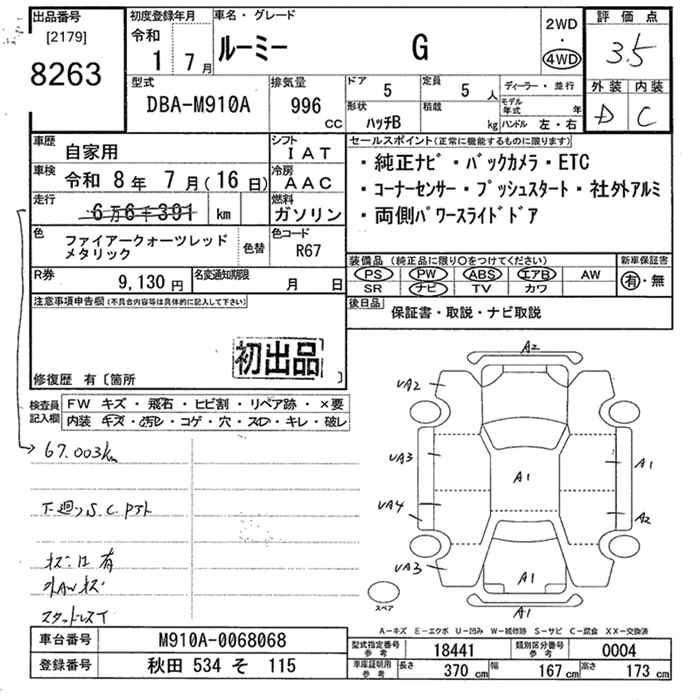 出品番号
[2179]
8263
初度登録年月
令和
1 7月
車名・グレード
ルーミー G
2WD
・
4WD
評価点
3.5
外装 内装
D C
型式
DBA-M910A
排気量
996
CC
ドア
5
定員
5 人
形状
ハッチB
積載
kg
ディーラー・並行
モデル年式 年
ハンドル 左・右
車歴
自家用
シフト
IAT
車検
令和 8年 7月(16日)
冷房
AAC
走行
6万6千391 km
燃料
ガソリン
色
ファイアークォーツレッド
メタリック
色替
色コード
R67
R券
9,130円
名変通知期限
月 日
セールスポイント(正常に機能するものに限ります)
・純正ナビ・バックカメラ・ETC
・コーナーセンサー・プッシュスタート・社外アルミ
・両側パワースライドドア
装備品(純正品に限り○をつけてください)
PS PW ABS エアB AW
SR ナビ TV カワ
新車保証書
有・無
後日品
保証書・取説・ナビ取説
注意事項申告欄(不具合内容等は具体的に記入して下さい)
初出品
修復歴 有〔箇所 〕
検査員
記入欄
FW キズ・飛石・ヒビ割・リペア跡・×要
内装 キズ・汚レ・コゲ・穴・スレ・キレ・破レ
67.003km
下廻りS.C
有
スタッドレスT
A2
UA2
UA3
A1
A1
UA4
A2
UA3
A1
A1
スペア
A-キズ E-エクボ U-凹み W-補修跡 S-サビ C-腐食 XX-交換済
車台番号
M910A-0068068
登録番号
秋田 534 そ 115
型式指定番号
参考
18441
類別区分番号
参考
0004
車庫証明用
参考
長さ 370 cm
幅 167 cm
高さ 173 cm